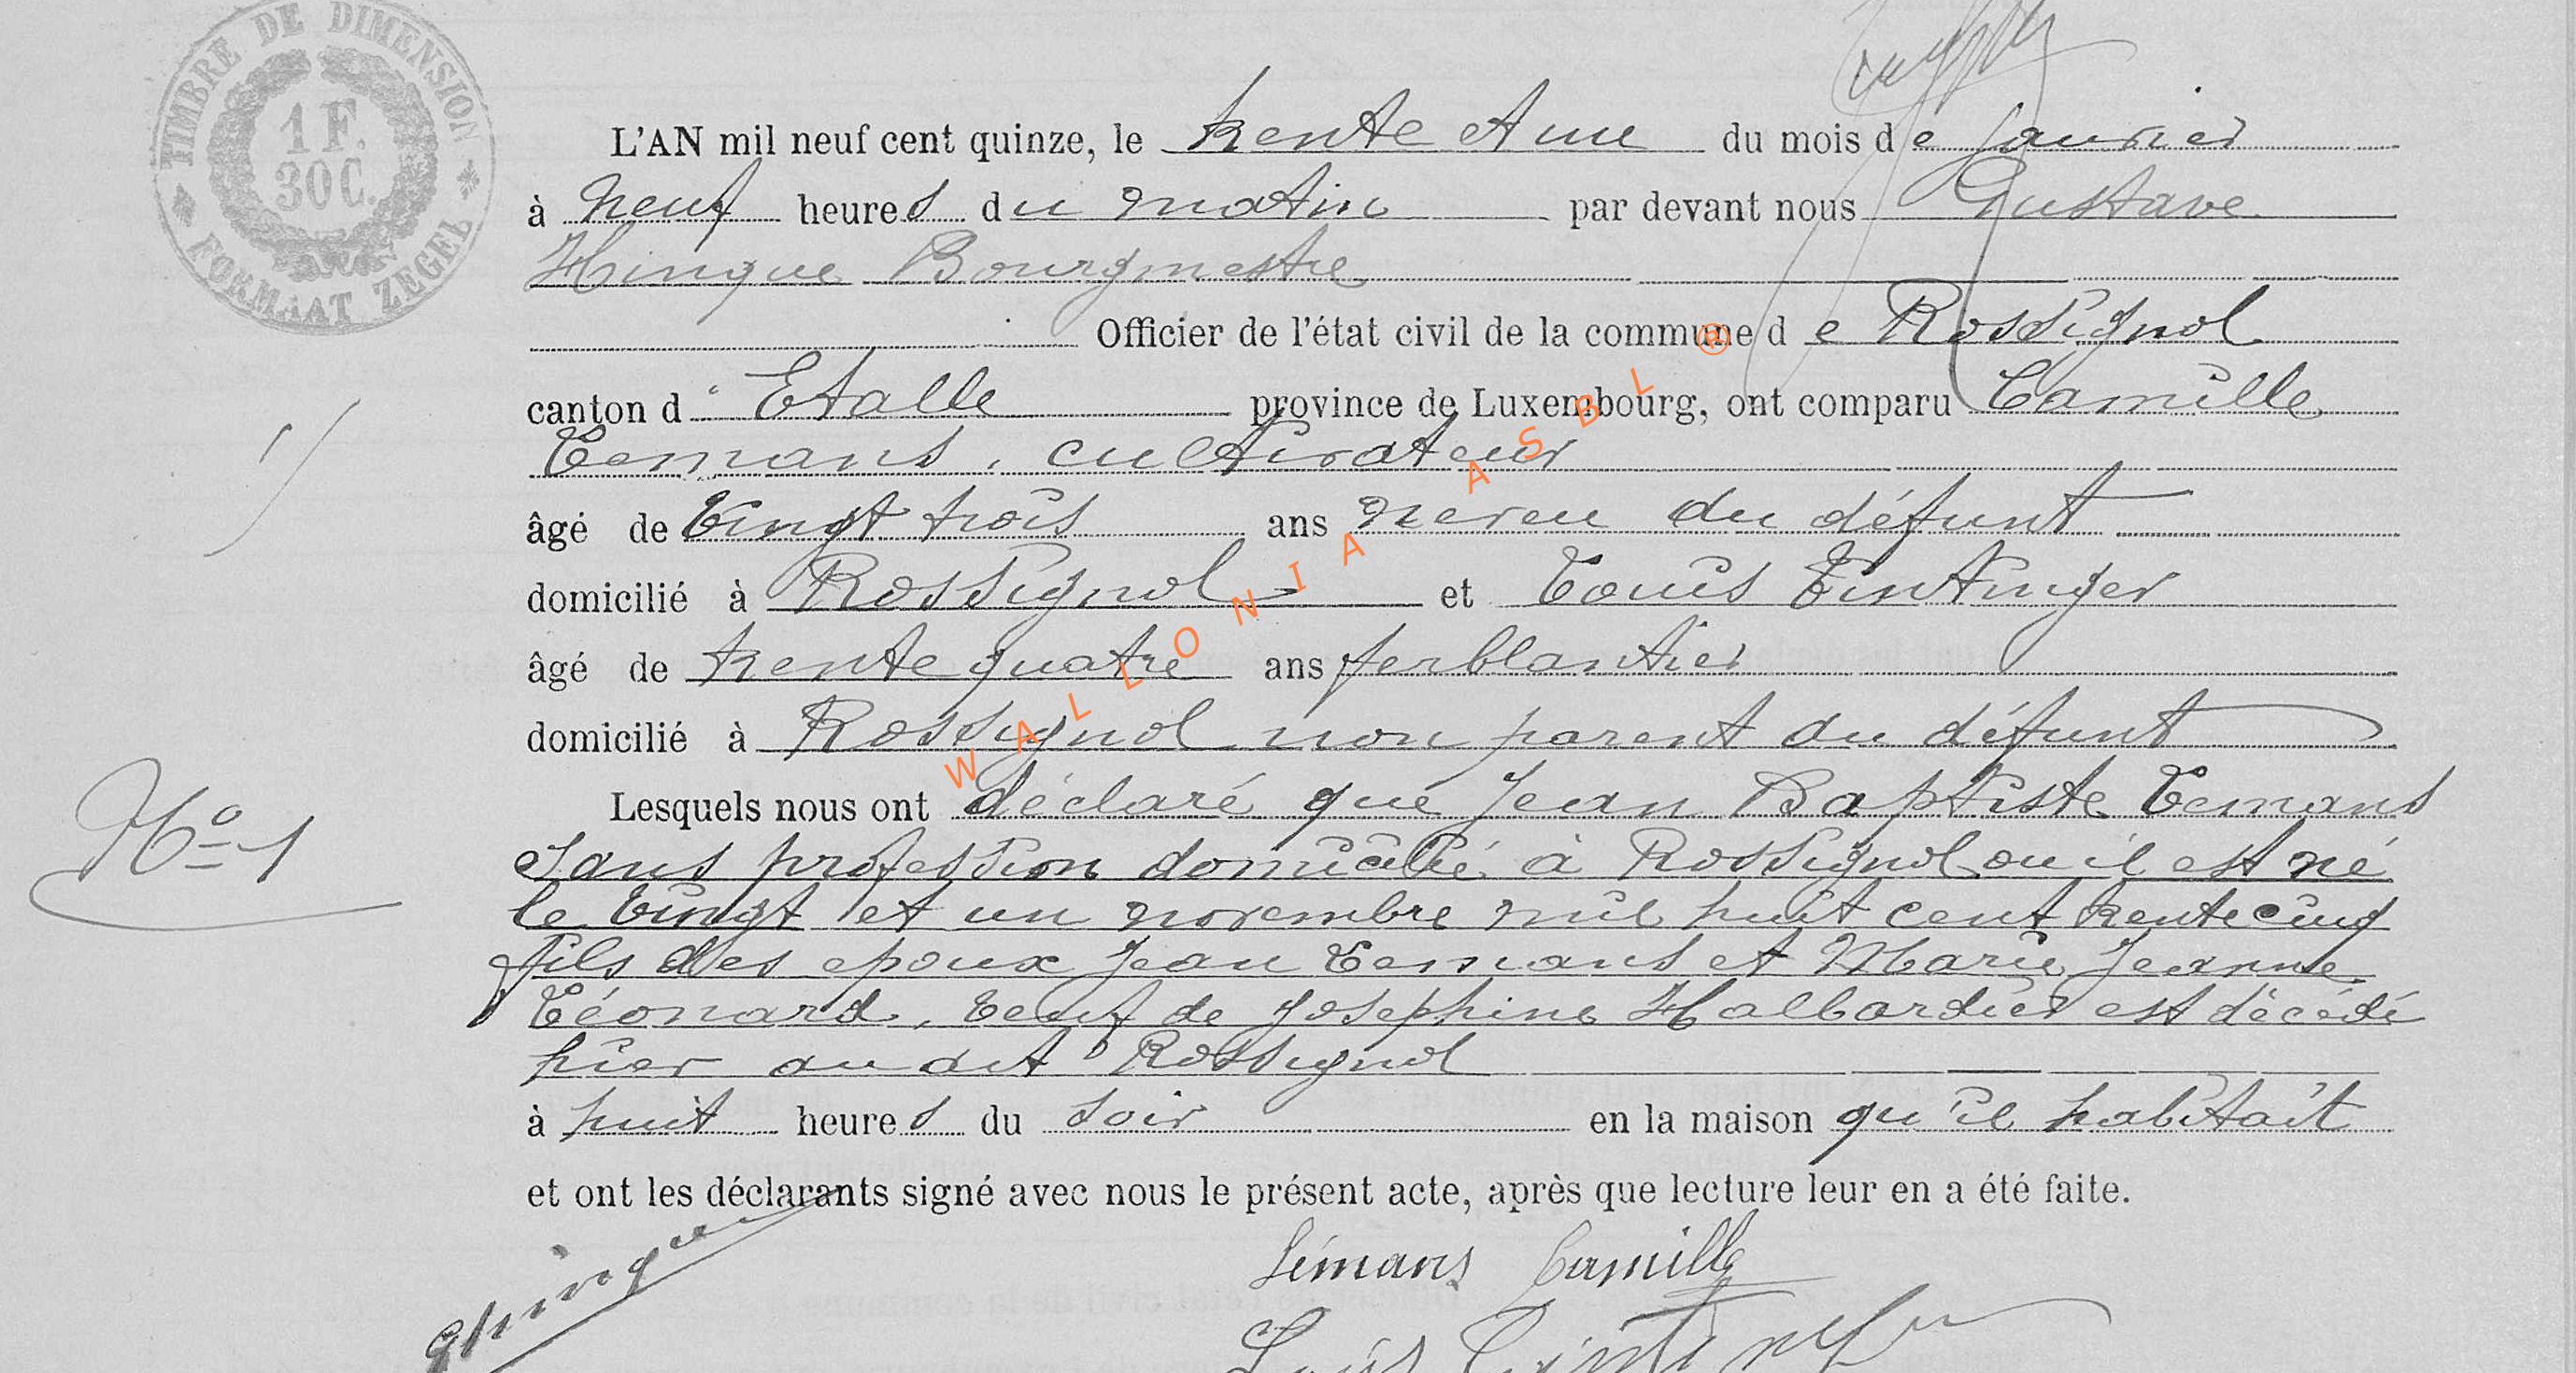 TIMBRE DE DIMENSION
1 F.
30 C.
FORMAAT ZEGEL
L'AN mil neuf cent quinze, le trente et un du mois de Janvier
à neuf heures du matin par devant nous Gustave
Hinque Bourgmestre
Officier de l'état civil de la commune de Rossignol
canton d'Etalle province de Luxembourg, ont comparu Camille
Lemans, cultivateur
âgé de vingt trois ans neveu du défunt
domicilié à Rossignol et Louis Tintinger
âgé de trente quatre ans ferblantier
domicilié à Rossignol non parent du défunt
Lesquels nous ont déclaré que Jean Baptiste Lemans
sans profession domicilié à Rossignol ou il est né
le vingt et un novembre mil huit cent trente cinq
fils des epoux Jean Lemans et Marie Jeanne
Léonard, veuf de Josephine Halbardier est décédé
hier au dit Rossignol
à huit heures du soir en la maison qu'il habitait
et ont les déclarants signé avec nous le présent acte, après que lecture leur en a été faite.
N° 1
GHinque
Lémans Camille
Louis Tintinger
WALLONIA ASBL ®